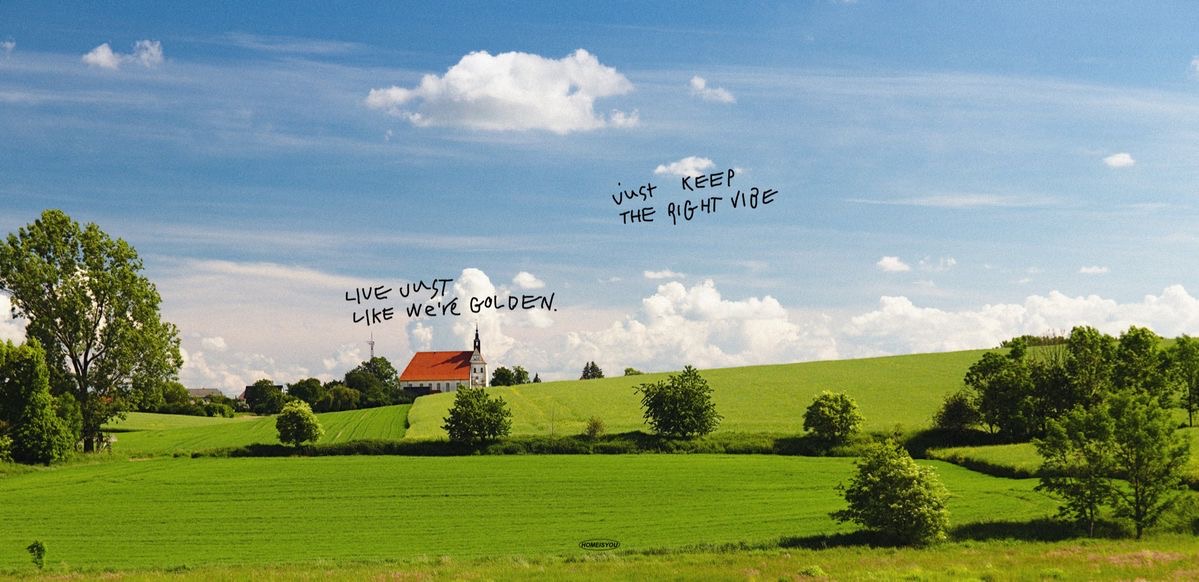 just KEEP
THE RIGHT VIBE
LIVE JUST
LIKE We're GOLDEN.
HOMEISYOU